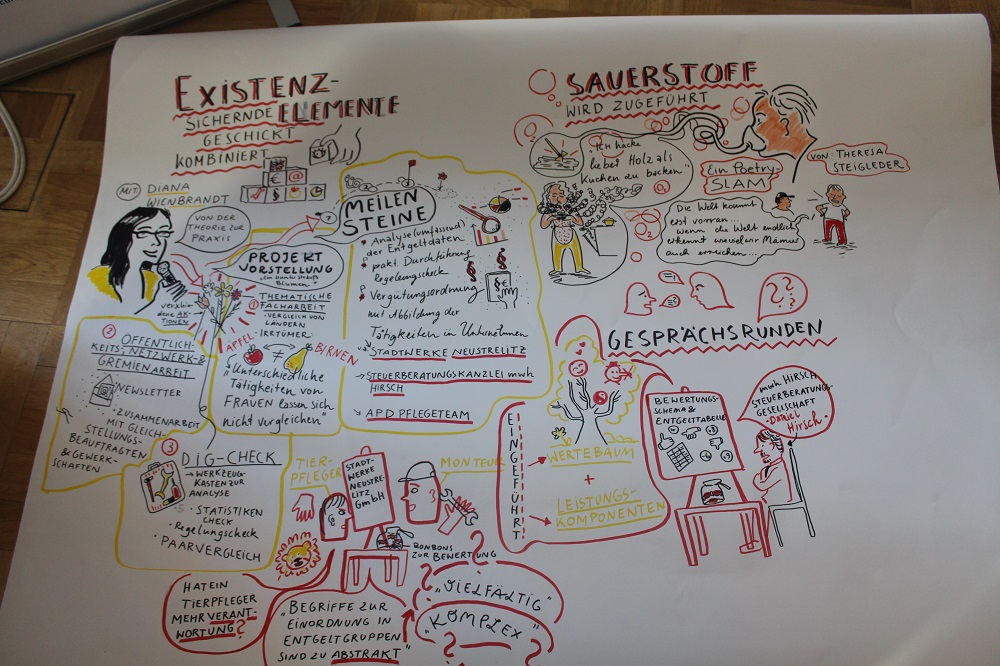 EXISTENZ-
SICHERNDE ELEMENTE
GESCHICKT
KOMBINIERT
@
§
MIT: DIANA
WIENBRANDT
VON DER
THEORIE ZUR
PRAXIS
PROJEKT
VORSTELLUNG
Blumen"
verschie
dene AK-
TIONEN
① THEMATISCHE
FACHARBEIT
- VERGLEICH VON
LÄNDERN
- IRRTÜMER
ÄPFEL ≠ BIRNEN
"Unterschiedliche
Tätigkeiten von
FRAUEN lassen sich
nicht vergleichen"
② ÖFFENTLICH-
KEITS, NETZWERK-&
GREMIENARBEIT
NEWSLETTER
• ZUSAMMENARBEIT
MIT GLEICH-
STELLUNGS-
BEAUFTRAGTEN
& GEWERK-
SCHAFTEN
③ DIG-CHECK
→ WERKZEUG-
KASTEN ZUR
ANALYSE
• STATISTIKEN
CHECK
• Regelungscheck
• PAARVERGLEICH
MEILEN
STEINE
Analyse (umfassend)
der Entgeltdaten
prakt. Durchführung
regelungscheck
Vergütungsordnung
mit Abbildung der
Tätigkeiten in Unternehmen
§
§
§€
→ STADTWERKE NEUSTRELITZ
→ STEUERBERATUNGSKANZLEI mwh
HIRSCH
→ APD PFLEGETEAM
SAUERSTOFF
WIRD ZUGEFÜHRT
"ICH hacke
lieber Holz als
Kuchen zu backen"
Ein Poetry-
SLAM
VON: THERESA
STEIGLEDER
O₂
Die Welt kommt
erst vorran...
wenn die Welt endlich
erkennt wieviel wir Männer
auch erreichen...
GESPRÄCHSRUNDEN
TIER-
PFLEGER
STADT-
WERKE
NEUSTRE-
LITZ
GmbH
MONTEUR
BONBONS
ZUR BEWERTUNG
HAT EIN
TIERPFLEGER
MEHR VERANT-
WORTUNG?
"BEGRIFFE ZUR
EINORDNUNG IN
ENTGELTGRUPPEN
SIND ZU ABSTRAKT"
"VIELFÄLTIG"
"KOMPLEX"
EINGEFÜHRT
→ WERTEBAUM
+
→ LEISTUNGS-
KOMPONENTEN
BEWERTUNGS-
SCHEMA &
ENTGELTTABELLE
mwh HIRSCH
STEUERBERATUNGS-
GESELLSCHAFT
- Daniel
Hirsch -